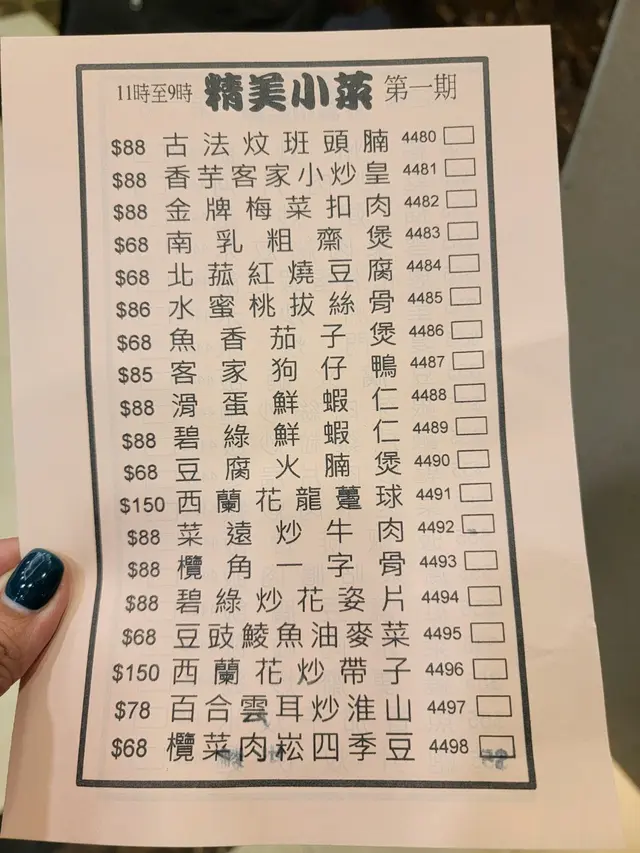 11時至9時 精美小菜 第一期
$88 古法炆班頭腩 4480
$88 香芋客家小炒皇 4481
$88 金牌梅菜扣肉 4482
$68 南乳粗齋煲 4483
$68 北菰紅燒豆腐 4484
$86 水蜜桃拔絲骨 4485
$68 魚香茄子煲 4486
$85 客家狗仔鴨 4487
$88 滑蛋鮮蝦仁 4488
$88 碧綠鮮蝦仁 4489
$68 豆腐火腩煲 4490
$150 西蘭花龍躉球 4491
$88 菜遠炒牛肉 4492
$88 欖角一字骨 4493
$88 碧綠炒花姿片 4494
$68 豆豉鯪魚油麥菜 4495
$150 西蘭花炒帶子 4496
$78 百合雲耳炒淮山 4497
$68 欖菜肉崧四季豆 4498